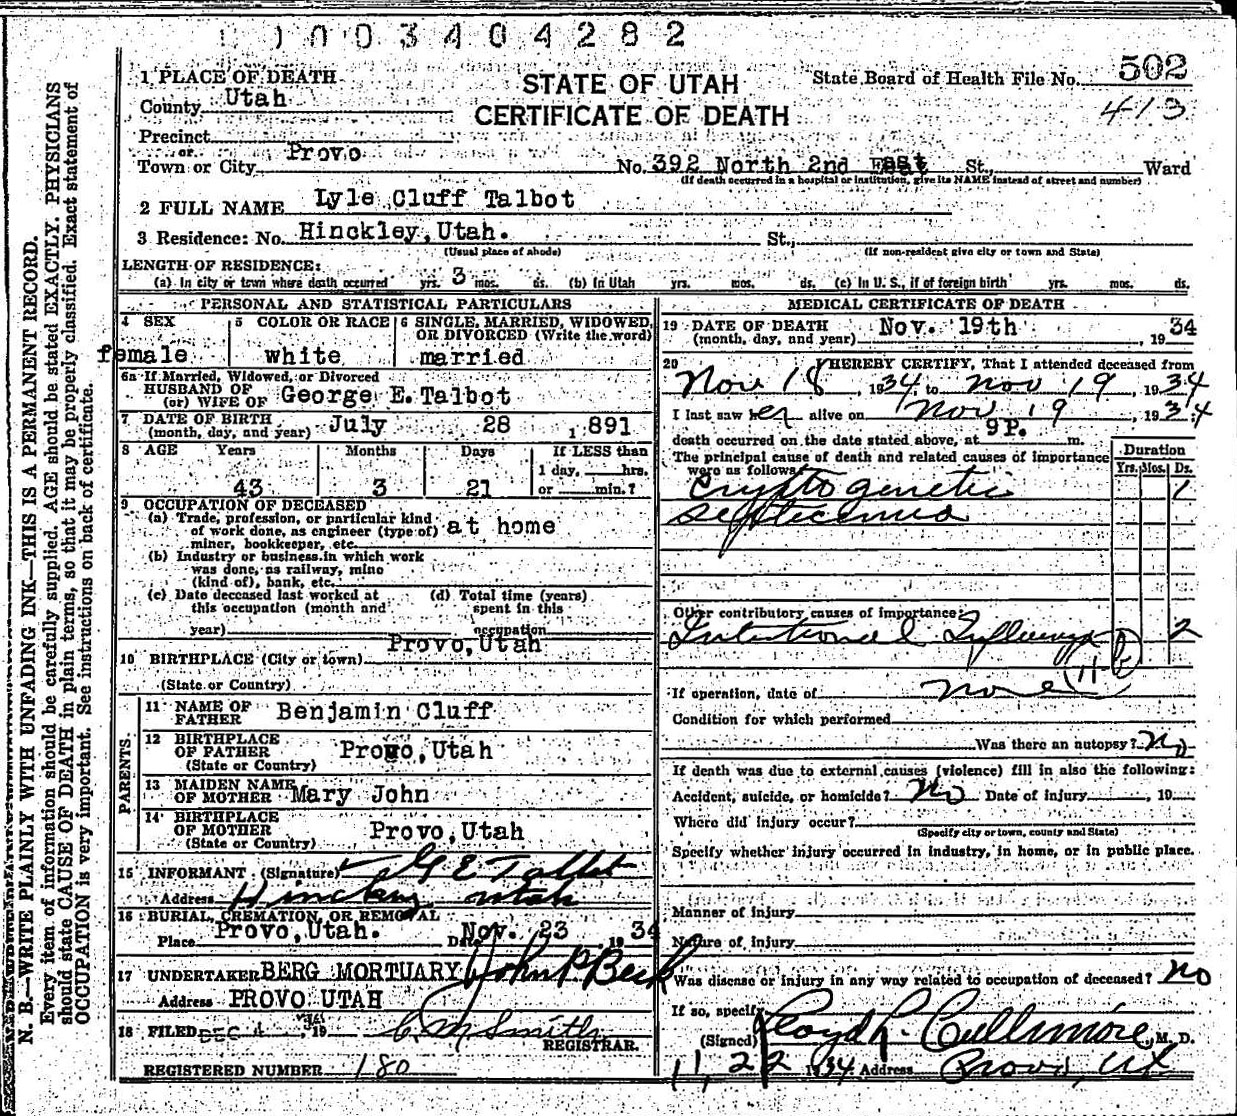 1003404282
1 PLACE OF DEATH
STATE OF UTAH
State Board of Health File No. 502
County Utah
CERTIFICATE OF DEATH
413
Precinct
or
Town or City Provo No. 392 North 2nd East St., Ward
(If death occurred in a hospital or institution, give its NAME instead of street and number)
2 FULL NAME Lyle Cluff Talbot
3 Residence: No. Hinckley, Utah. St.,
(Usual place of abode) (If non-resident give city or town and State)
LENGTH OF RESIDENCE:
(a) In city or town where death occurred yrs. 3 mos. ds. (b) In Utah yrs. mos. ds. (c) In U. S., if of foreign birth yrs. mos. ds.
PERSONAL AND STATISTICAL PARTICULARS
4 SEX
female
5 COLOR OR RACE
white
6 SINGLE, MARRIED, WIDOWED,
OR DIVORCED (Write the word)
married
6a If Married, Widowed, or Divorced
HUSBAND OF
(or) WIFE OF George E. Talbot
7 DATE OF BIRTH
(month, day, and year) July 28 1891
8 AGE Years Months Days If LESS than
1 day, hrs.
43 3 21 or min.?
9 OCCUPATION OF DECEASED
(a) Trade, profession, or particular kind
of work done, as engineer (type of) at home
miner, bookkeeper, etc.
(b) Industry or business in which work
was done, as railway, mine
(kind of), bank, etc.
(c) Date deceased last worked at
this occupation (month and
year)
(d) Total time (years)
spent in this
occupation
Provo, Utah
10 BIRTHPLACE (City or town)
(State or Country)
PARENTS
11 NAME OF
FATHER Benjamin Cluff
12 BIRTHPLACE
OF FATHER Provo, Utah
(State or Country)
13 MAIDEN NAME
OF MOTHER Mary John
14 BIRTHPLACE
OF MOTHER Provo, Utah
(State or Country)
15 INFORMANT (Signature) G E Talbot
Address Hinckley Utah
16 BURIAL, CREMATION, OR REMOVAL
Place Provo, Utah. Date Nov. 23 1934
17 UNDERTAKER BERG MORTUARY John P Beck
Address PROVO UTAH
18 FILED DEC 4 19 C. M. Smith
REGISTRAR.
REGISTERED NUMBER 180
MEDICAL CERTIFICATE OF DEATH
19 DATE OF DEATH
(month, day, and year) Nov. 19th, 1934
20 I HEREBY CERTIFY, That I attended deceased from
Nov 18, 1934, to Nov 19, 1934
I last saw her alive on Nov 19, 1934
death occurred on the date stated above, at 9P. m.
The principal cause of death and related causes of importance
were as follows:
Duration
Yrs. Mos. Ds.
Cryptogenetic 1
septicemia
Other contributory causes of importance:
Intestional Influenza 2
11-b
If operation, date of none
Condition for which performed
Was there an autopsy? No
If death was due to external causes (violence) fill in also the following:
Accident, suicide, or homicide? No Date of injury, 19
Where did injury occur?
(Specify city or town, county and State)
Specify whether injury occurred in industry, in home, or in public place.
Manner of injury
Nature of injury
Was disease or injury in any way related to occupation of deceased? No
If so, specify
(Signed) Lloyd L. Cullimore, M. D.
11, 22 1934 Address Provo, Ut
N. B.—WRITE PLAINLY WITH UNFADING INK—THIS IS A PERMANENT RECORD.
Every item of information should be carefully supplied. AGE should be stated EXACTLY. PHYSICIANS
should state CAUSE OF DEATH in plain terms, so that it may be properly classified. Exact statement of
OCCUPATION is very important. See instructions on back of certificate.